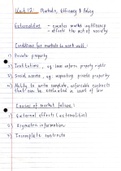 Week 17: Markets, Efficiency & Policy
Externalities - creates market inefficiency
- affects the rest of society
Conditions for markets to work well:
1) Private property
2) Institutions, eg. laws enforcing property rights
3) Social norms, eg. respecting private property
4) Ability to write complete, enforceable contracts
that can be arbitrated in a court of law
Causes of market failure:
1) External effects (externalities)
2) Asymmetric information
3) Incomplete contracts